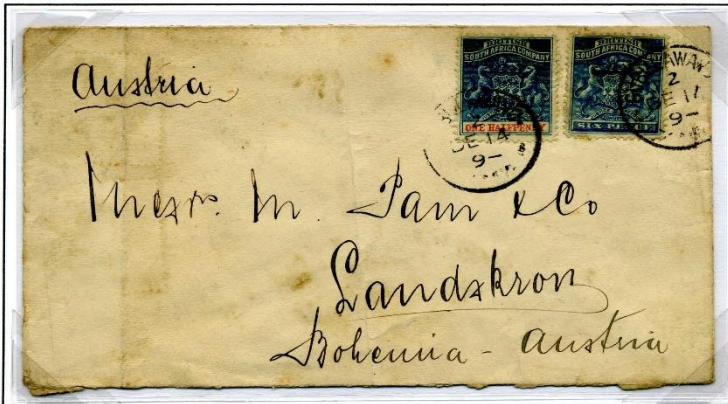 Austria
BRITISH
SOUTH AFRICA COMPANY
ONE HALFPENNY
BRITISH
SOUTH AFRICA COMPANY
SIX PENCE
DE 14
9-
2
DE 11
9-
Messrs. M. Pam & Co
Landskron
Bohemia - Austria